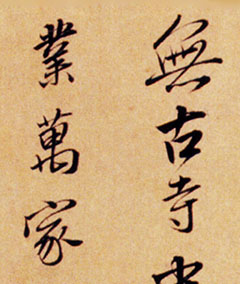 無古寺
業萬家